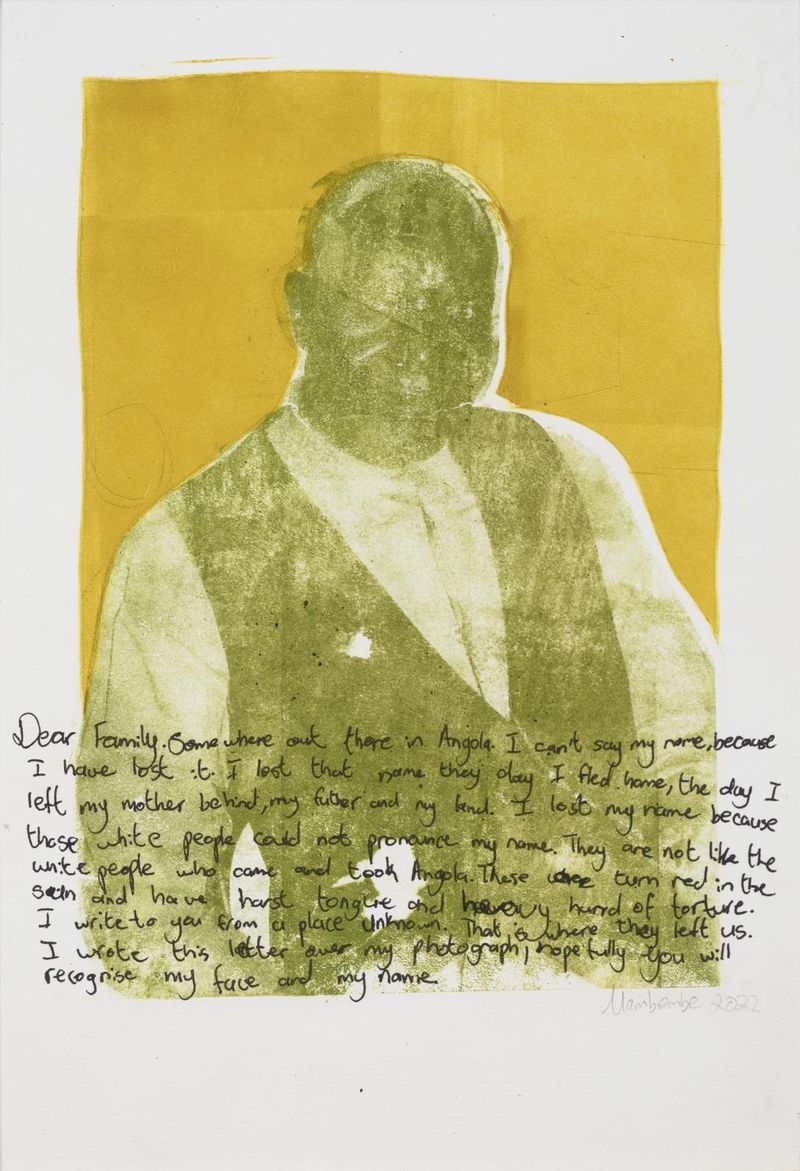 Dear Family. Somewhere out there in Angola. I can't say my name, because
I have lost it. I lost that name they day I fled home, the day I
left my mother behind, my father and my land. I lost my name because
those white people could not pronounce my name. They are not like the
white people who came and took Angola. These turn red in the
and have harst tongue and heavy hand of torture.
I write to you from a place unknown. That is where they left us.
I wrote this letter over my photograph, hopefully you will
recognise my face and my name.
Mambembe 2022